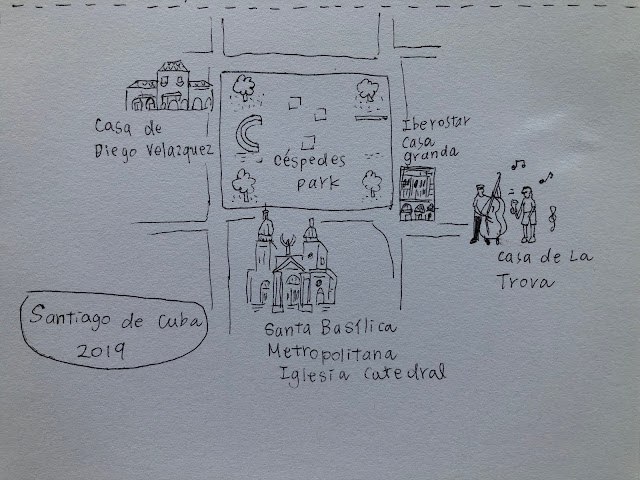 Casa de
Diego Velazquez
Céspedes
park
Iberostar
Casa
granda
Casa de La
Trova
Santiago de Cuba
2019
Santa Basílica
Metropolitana
Iglesia Catedral